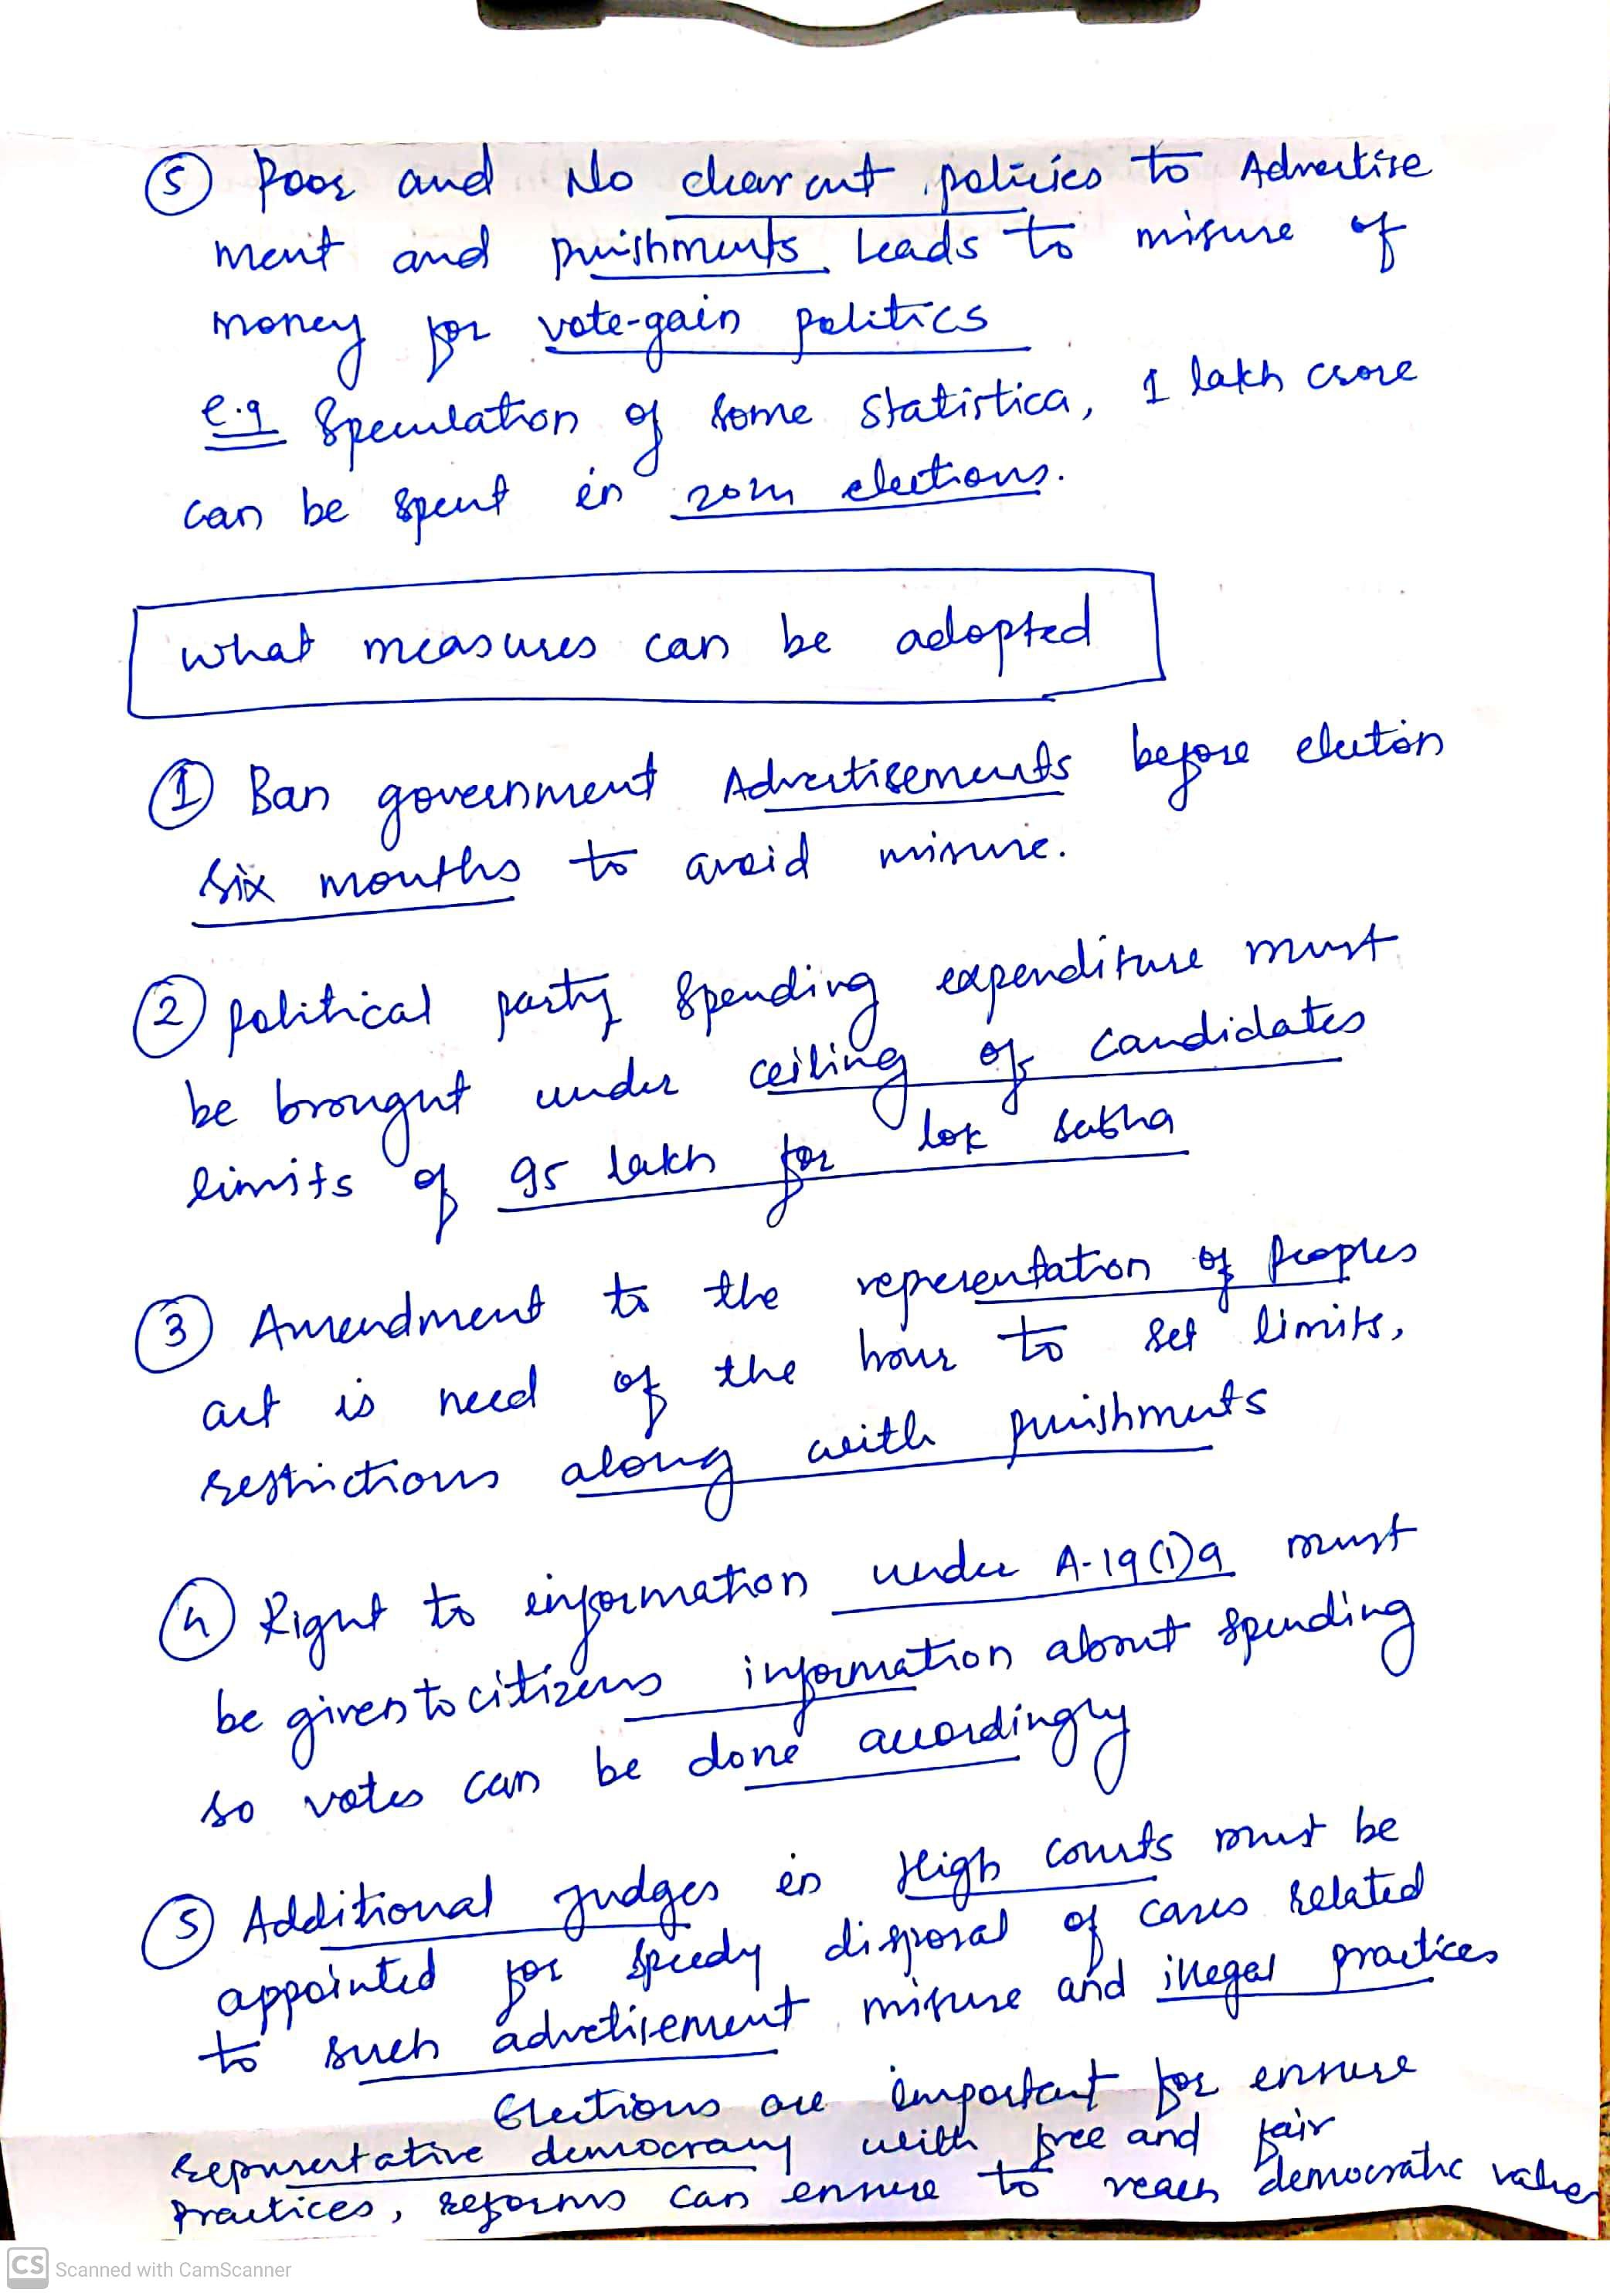 ⑤ Poor and No clear cut policies to Advertise
ment and punishments leads to misuse of
money for vote-gain politics
e.g Speculation of some statistica, 1 lakh crore
can be spent in 2024 elections.
what measures can be adopted
① Ban government Advertisements before election
six months to avoid misuse.
② political party spending expenditure must
be brought under ceiling of candidates
limits of 95 lakh for lok sabha
③ Amendment to the representation of peoples
act is need of the hour to set limits,
restrictions along with punishments
④ Right to information under A-19(1)a must
be given to citizens information about spending
so votes can be done accordingly
⑤ Additional judges in High courts must be
appointed for speedy disposal of cases related
to such advetisement misuse and illegal practices
Elections are important for ensure
representative democracy with free and fair
Practices, reforms can ensure to reach democratic values
CS Scanned with CamScanner